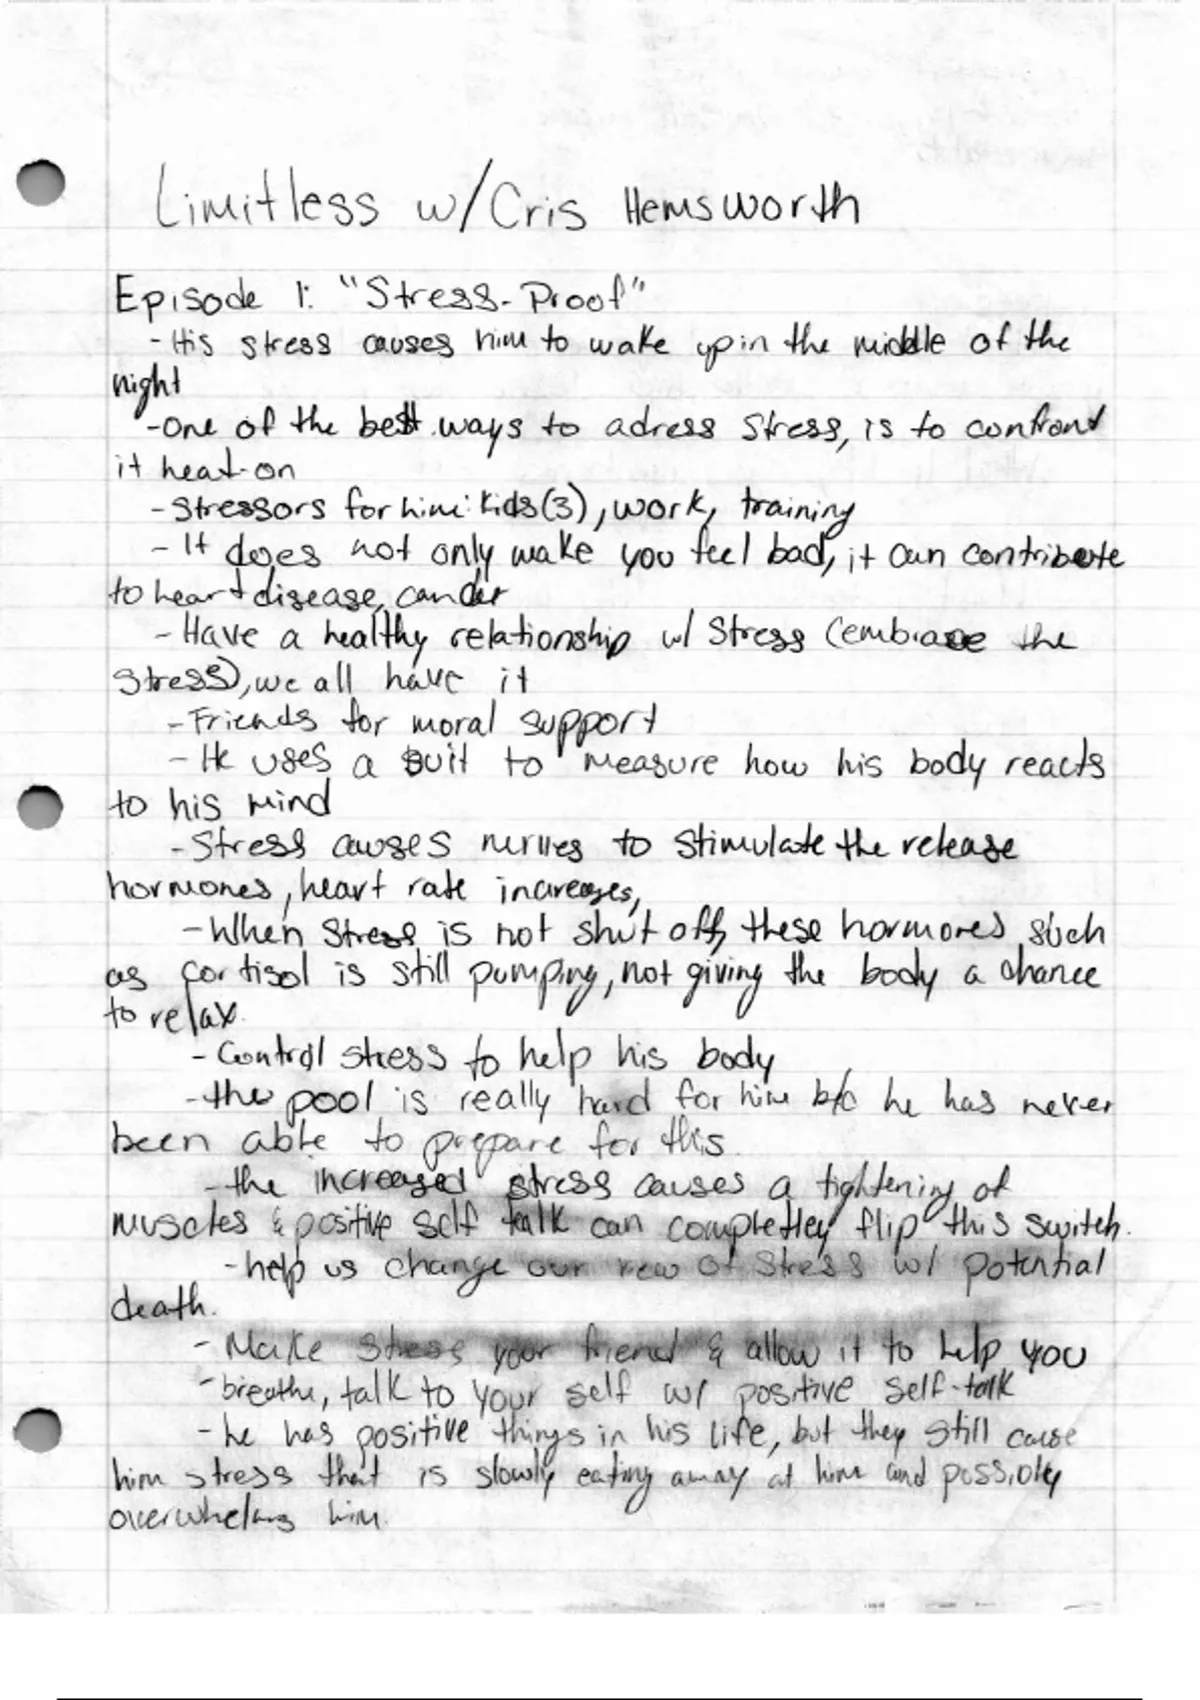 Limitless w/Cris Hemsworth
Episode 1: "Stress-Proof"
-His stress causes him to wake up in the middle of the
night
-One of the best ways to adress stress, is to confront
it head-on
-Stressors for him: kids(3), work, training
-It does not only make you feel bad, it can contribute
to heart disease, cancer
-Have a healthy relationship w/ stress (embrace the
stress), we all have it
-Friends for moral support
-He uses a suit to measure how his body reacts
to his mind
-Stress causes nerves to stimulate the release
hormones, heart rate increases,
-When stress is not shut off, these hormones such
as cortisol is still pumping, not giving the body a chance
to relax.
-Control stress to help his body
-the pool is really hard for him b/c he has never
been able to prepare for this.
-the increased stress causes a tightening of
muscles & positive self talk can completley flip this switch.
-help us change our view of stress w/ potential
death.
-Make stress your friend & allow it to help you
-breathe, talk to your self w/ positive self-talk
-he has positive things in his life, but they still cause
him stress that is slowly eating away at him and possibly
overwhelms him.